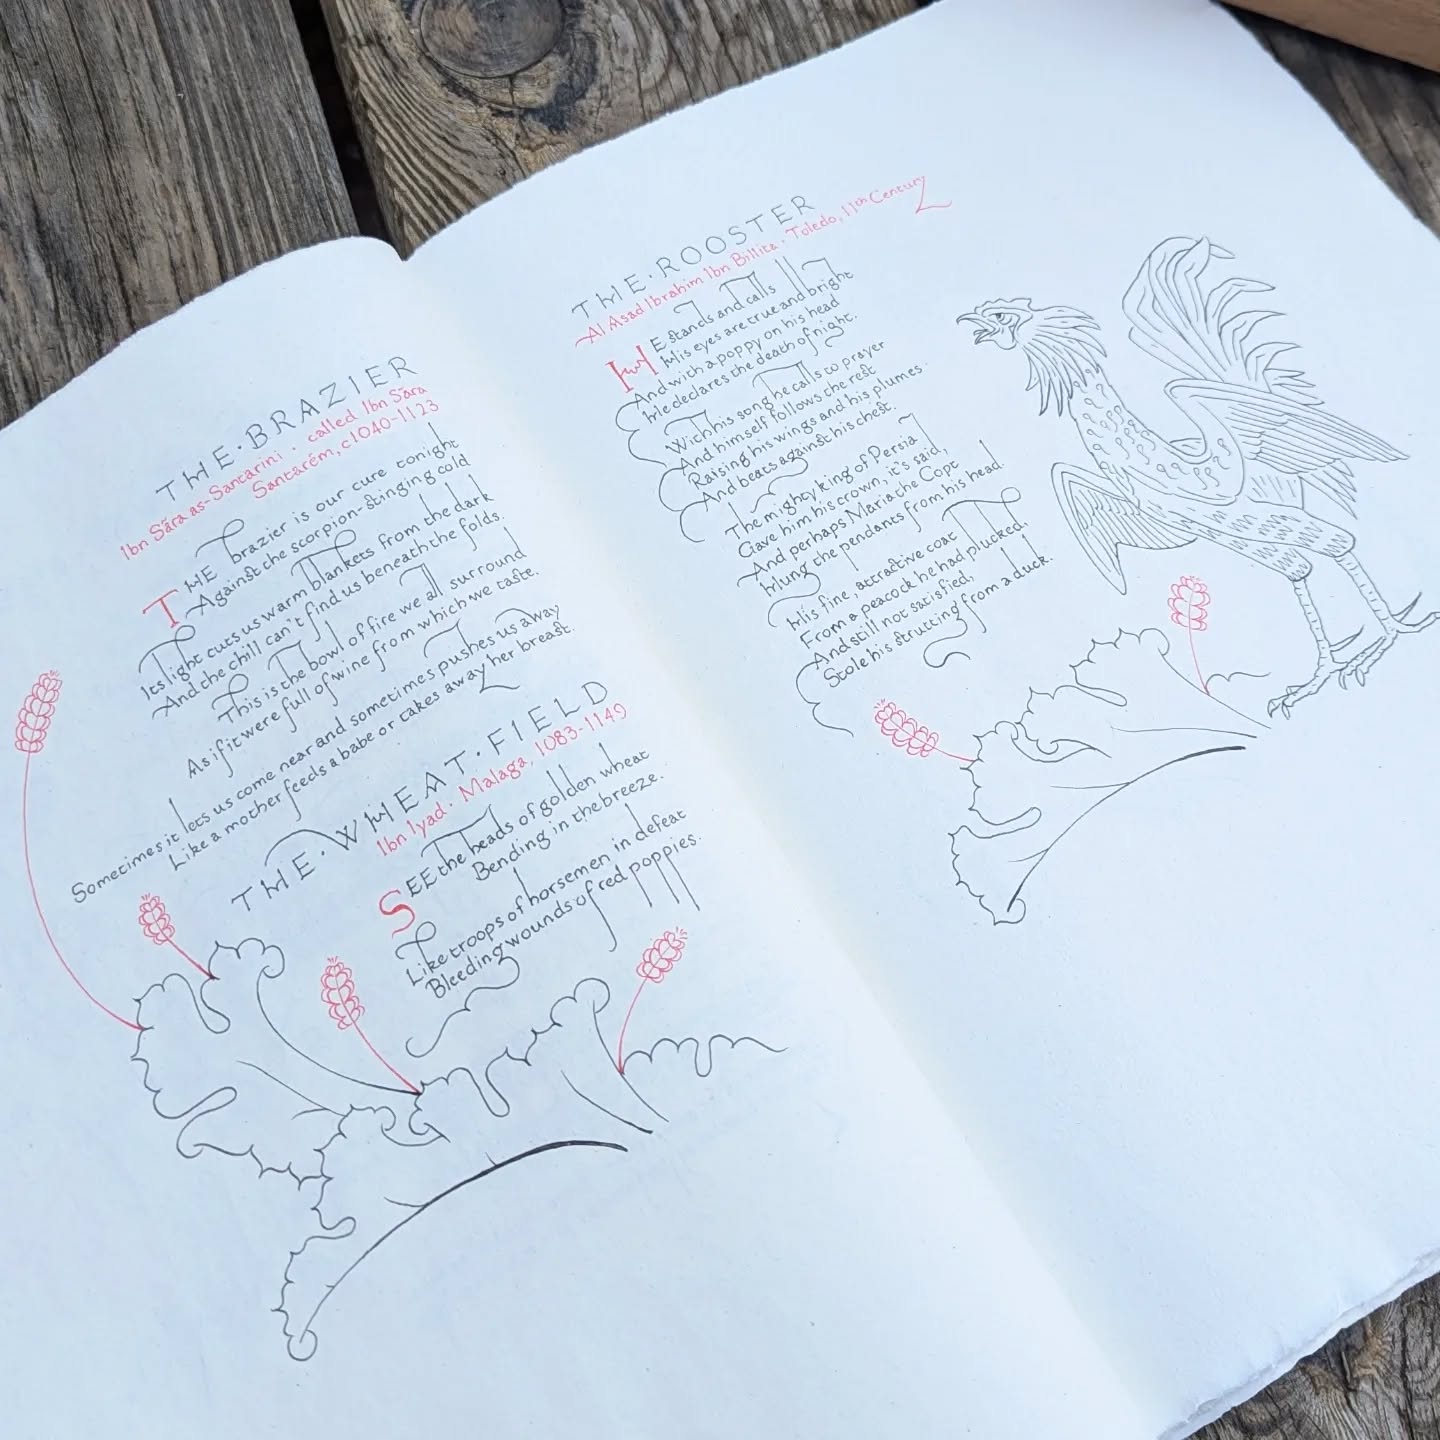 THE·BRAZIER
Ibn Sāra as-Santarini · called Ibn Sāra
Santarém, c1040-1123
THE brazier is our cure tonight
Against the scorpion-stinging cold
Its light cuts us warm blankets from the dark
And the chill can't find us beneath the folds.
This is the bowl of fire we all surround
As if it were full of wine from which we taste.
Sometimes it lets us come near and sometimes pushes us away
Like a mother feeds a babe or takes away her breast.
THE·WHEAT·FIELD
Ibn Iyad · Malaga, 1083-1149
SEE the heads of golden wheat
Bending in the breeze.
Like troops of horsemen in defeat
Bleeding wounds of red poppies.
THE·ROOSTER
Al Asad Ibrahim Ibn Billita · Toledo, 11th Century
HE stands and calls
His eyes are true and bright
And with a poppy on his head
He declares the death of night.
With his song he calls to prayer
And himself follows the rest
Raising his wings and his plumes
And beats against his chest.
The mighty king of Persia
Gave him his crown, it's said,
And perhaps Maria the Copt
Hung the pendants from his head.
His fine, attractive coat
From a peacock he had plucked,
And still not satisfied,
Stole his strutting from a duck.